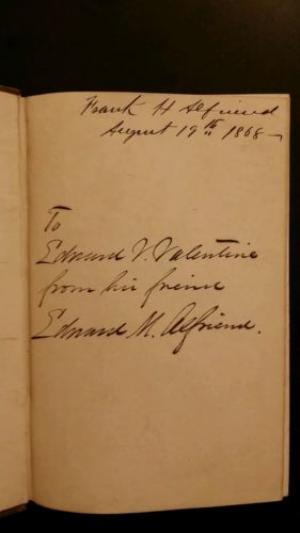 Frank H Alfriend
August 19th 1868
To
Edward V. Valentine
from his friend
Edward M. Alfriend.